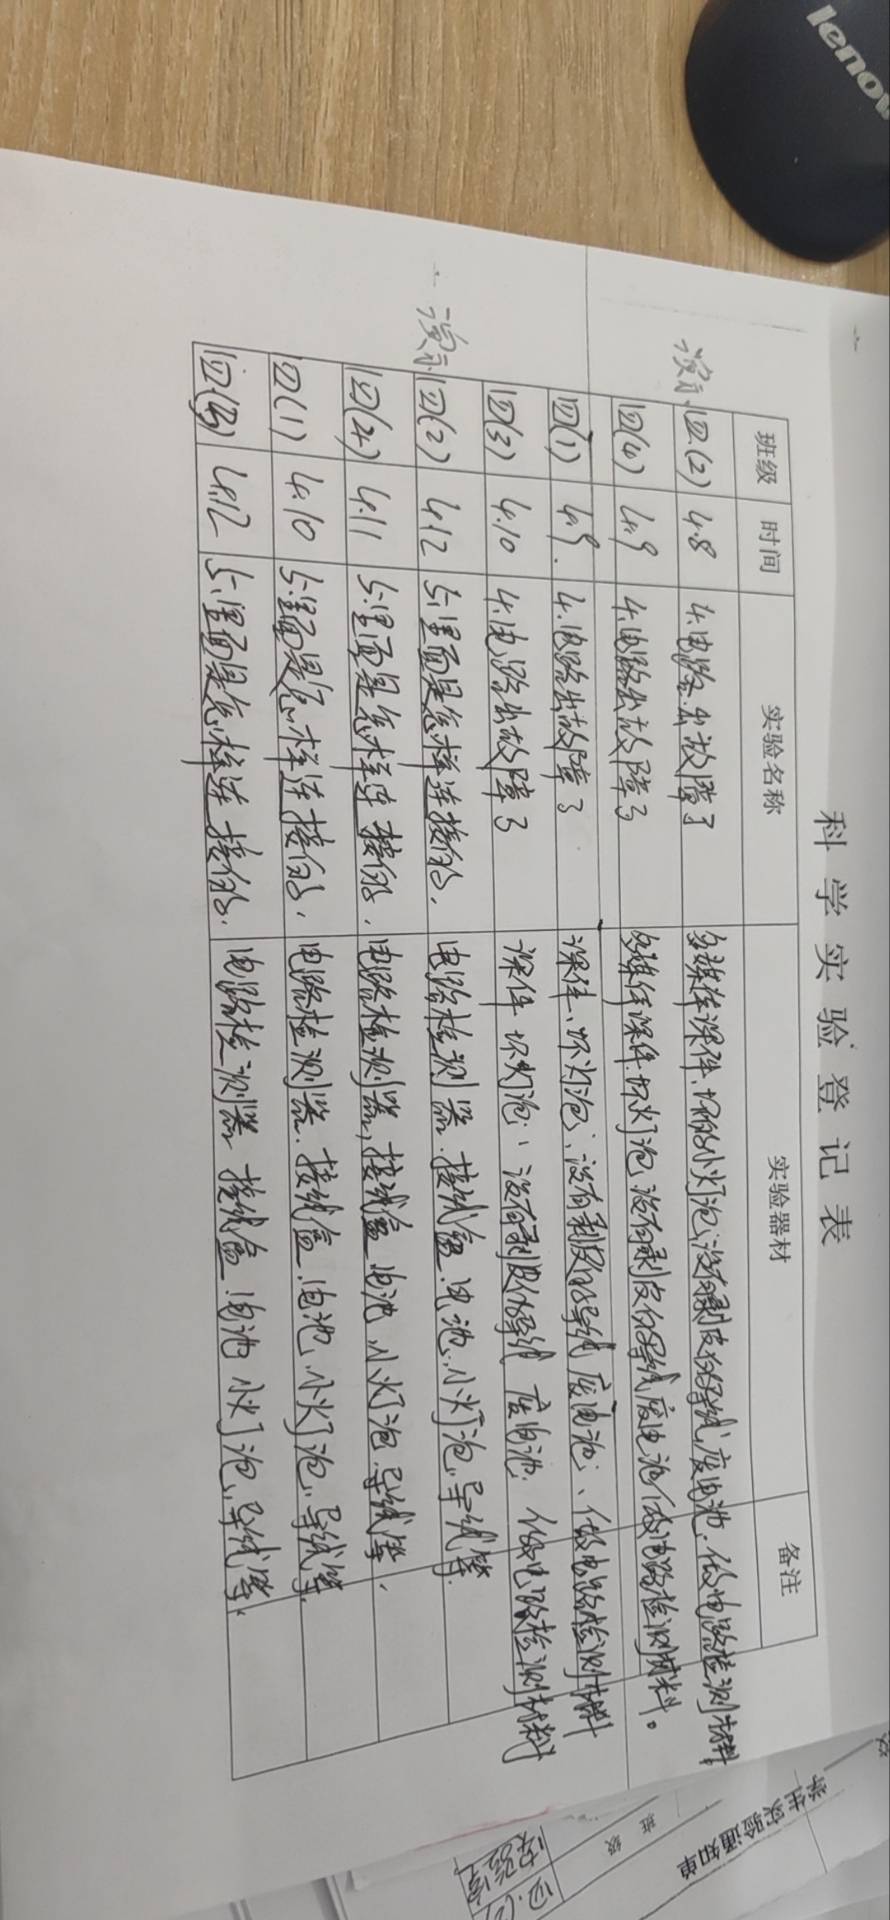 科学实验登记表
班级 时间 实验名称 实验器材 备注
演示 四(2) 4.8 4.电路出故障了 多媒体课件、坏的小灯泡、没有剥皮的导线、废电池、做电路检测材料
四(4) 4.9 4.电路出故障了 多媒体课件.坏灯泡 没有剥皮的导线废电池做电路检测材料。
四(1) 4.9. 4.电路出故障了 课件、坏灯泡、没有剥皮的导线 废电池、做电路检测材料
四(3) 4.10 4.电路出故障了 课件 坏灯泡、没有剥皮的导线 废电池. 做电路检测材料
演示 四(2) 4.12 5.里面是怎样连接的, 电路检测器.接线盒.电池.小灯泡.导线等.
四(4) 4.11 5.里面是怎样连接的, 电路检测器,接线盒 电池 小灯泡 导线等,
四(1) 4.10 5.里面是怎样连接的, 电路检测器.接线盒.电池、小灯泡.导线等.
四(3) 4.12 5.里面是怎样连接的. 电路检测器 接线盒 电池 小灯泡、导线等.
学生实验通知单
班级
四.(2)
lenov